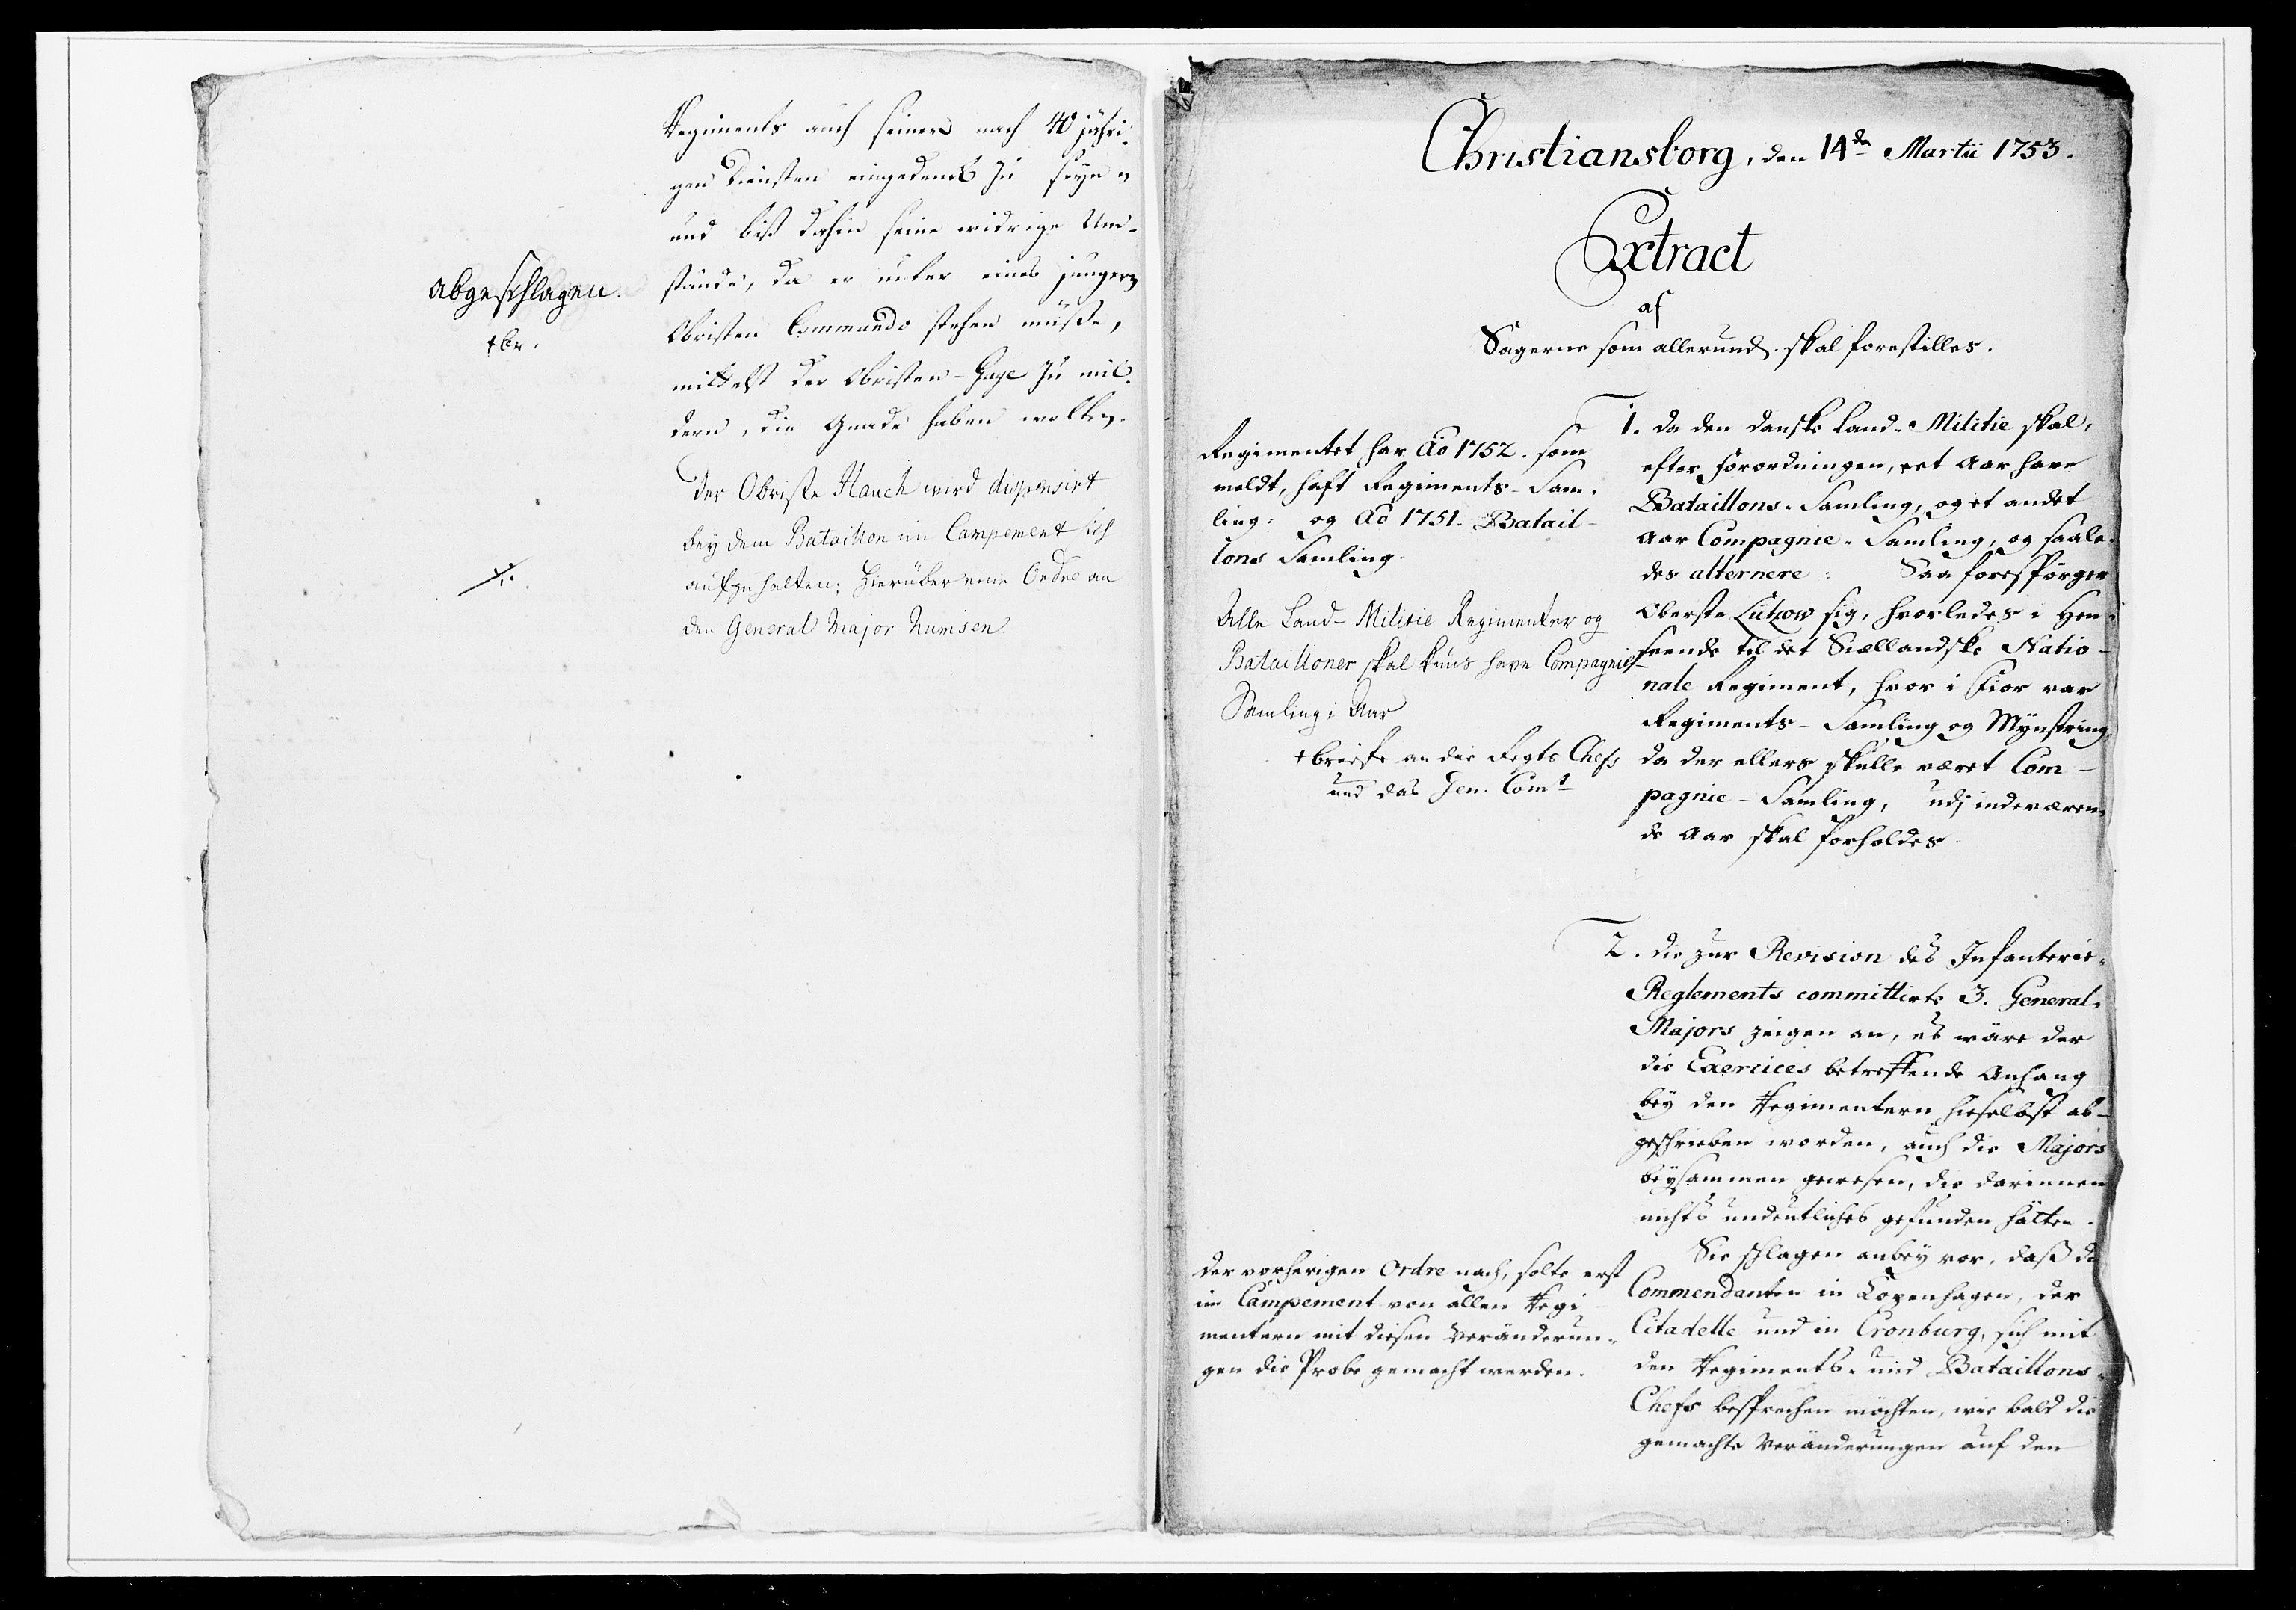 Regiments auch seiner nach 40 jähri-
gen Diensten eingedenck zu seyn,
und biß dahin seine widrige Um-
stände, da er unter eines jungern
Obristen Commando stehen müste,
mittelst der Obristen-Gage zu mil-
dern, die Gnade haben wolten.
abgeschlagen.
+br.
Der Obriste Hauch wird dispensirt
bey dem Bataillon im Campement sich
aufzuhalten; hierüber eine Ordre an
den General Major Numsen.
Christiansborg, den 14de Martii 1753.
Extract
af
Sagerne som allerund. skal forestilles.
1. Da den danske Land-Militie skal,
efter Forordningen, eet Aar have
Bataillons-Samling, og et andet
Aar Compagnie-Samling, og saale-
des alternere: Saa forespørger
Oberste Lützow sig, hvorledes i Hen-
seende til det Siællandske Natio-
nale Regiment, hvor i Fior var
Regiments-Samling og Mynstring,
da der ellers skulle været Com-
pagnie-Samling, udj indeværen-
de Aar skal forholdes.
Regimentet har Ao 1752. som
meldt, haft Regiments-Sam-
ling: og Ao 1751. Batail-
lons Samling.
Alle Land-Militie Regimenter og
Batailloner skal kuns have Compagnie
Samling i Aar
+ briefe an die Regts Chefs
und das Gen. Comt
2. Die zur Revision des Infanterie-
Reglements committirte 3. General-
Majors zeigen an, es wäre der
die Exercices betreffende Anhang
bey den Regimentern hieselbst ab-
geschrieben worden, auch die Majors
beysammen gewesen, die darinnen
nichts undeutliches gefunden hätten.
Sie schlagen anbey vor, daß die
Commendanten in Copenhagen, der
Citadelle und in Cronburg, sich mit
den Regiments- und Bataillons-
Chefs besprechen möchten, wie bald die
gemachte Veränderungen auf den
Der vorherigen Ordre nach, solte erst
im Campement von allen Regi-
mentern mit diesen Veränderun-
gen die Probe gemacht werden.